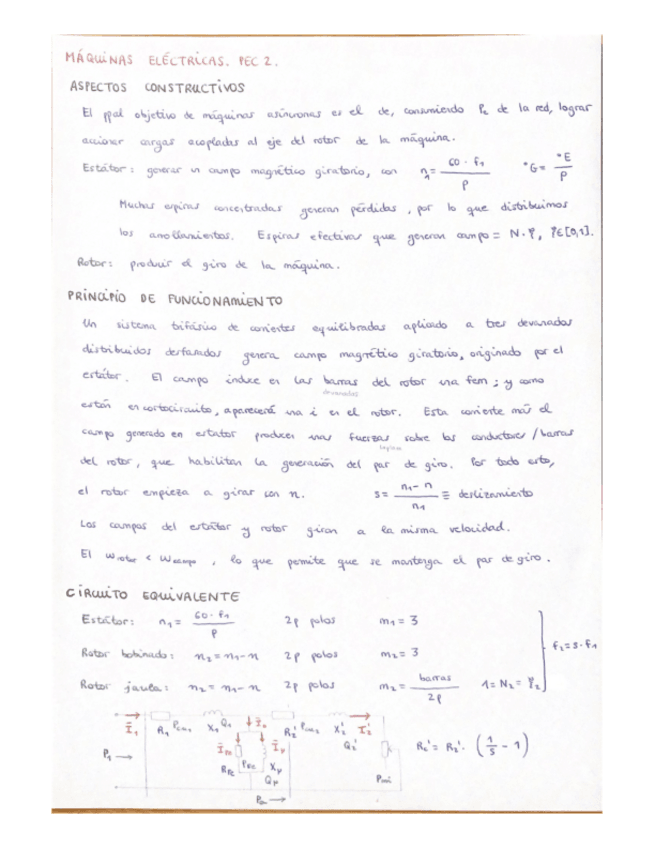 MÁQUINAS ELÉCTRICAS. PEC 2.
ASPECTOS CONSTRUCTIVOS
El ppal objetivo de máquinas asíncronas es el de, consumiendo Pe de la red, lograr
accionar cargas acopladas al eje del rotor de la máquina.
Estátor: generar un campo magnético giratorio, con n₁ = 60 · f₁ / P °G = °E / P
Muchas espiras concentradas generan pérdidas, por lo que distribuimos
los arrollamientos. Espiras efectivas que generan campo = N·φ, φ∈[0,1].
Rotor: producir el giro de la máquina.
PRINCIPIO DE FUNCIONAMIENTO
Un sistema trifásico de corrientes equilibradas aplicado a tres devanados
distribuidos desfasados genera campo magnético giratorio, originado por el
estátor. El campo induce en las barras del rotor una fem; y como
devanados
están en cortocircuito, aparecerá una i en el rotor. Esta corriente más el
campo generado en estator producen unas fuerzas sobre los conductores/barras
del rotor, que habilitan la generación del par de giro. Por todo esto,
el rotor empieza a girar con n. s = n₁ - n / n₁ ≡ deslizamiento
Los campos del estátor y rotor giran a la misma velocidad.
El Wrotor < Wcampo, lo que permite que se mantenga el par de giro.
CIRCUITO EQUIVALENTE
Estátor: n₁ = 60 · f₁ / P 2p polos m₁ = 3
Rotor bobinado: n₂ = n₁ - n 2p polos m₂ = 3 f₂ = s · f₁
Rotor jaula: n₂ = n₁ - n 2p polos m₂ = barras / 2p 1 = N₂ = φ₂
I₁ R₁ Pcu₁ X₁ Q₁ I₀ R₂' Pcu₂ X₂' I₂'
Q₂' Rc' = R₂' · (1/s - 1)
P₁ RFe PFe Xμ Qμ Pmi
Pa